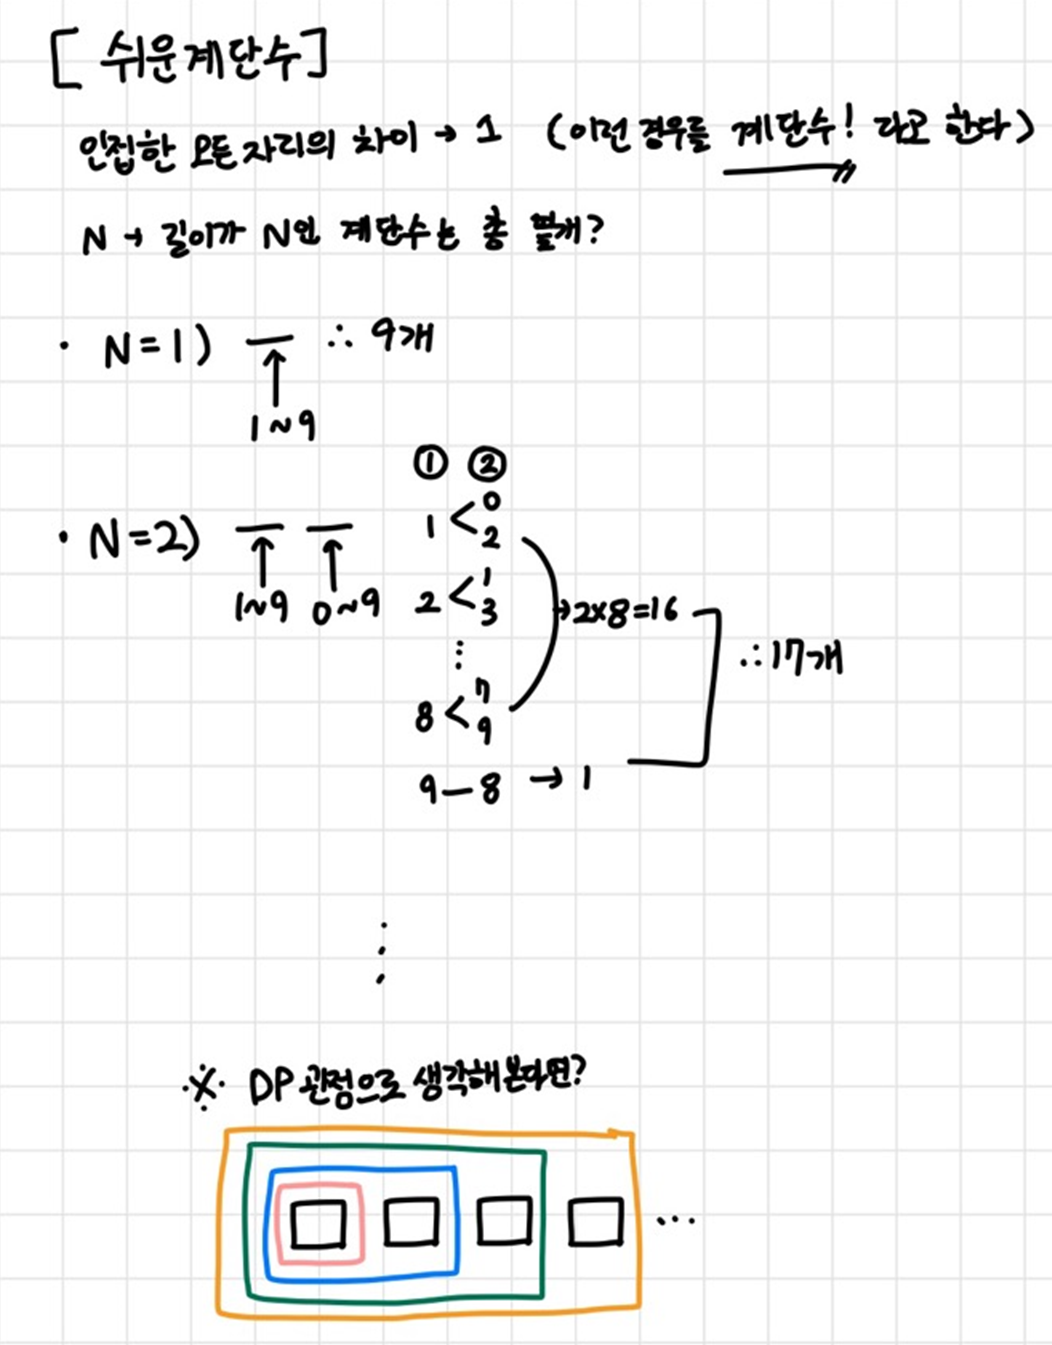 [ 쉬운계단수]
인접한 모든 자리의 차이 → 1 (이런 경우를 계단수! 라고 한다)
N → 길이가 N인 계단수는 총 몇개?
· N=1) ∴ 9개
1~9
① ②
· N=2) 1 < 0 2
1~9 0~9 2 < 1 3 → 2×8=16
⋮ ∴ 17개
8 < 7 9
9 — 8 → 1
⋮
※ DP 관점으로 생각해본다면?
...